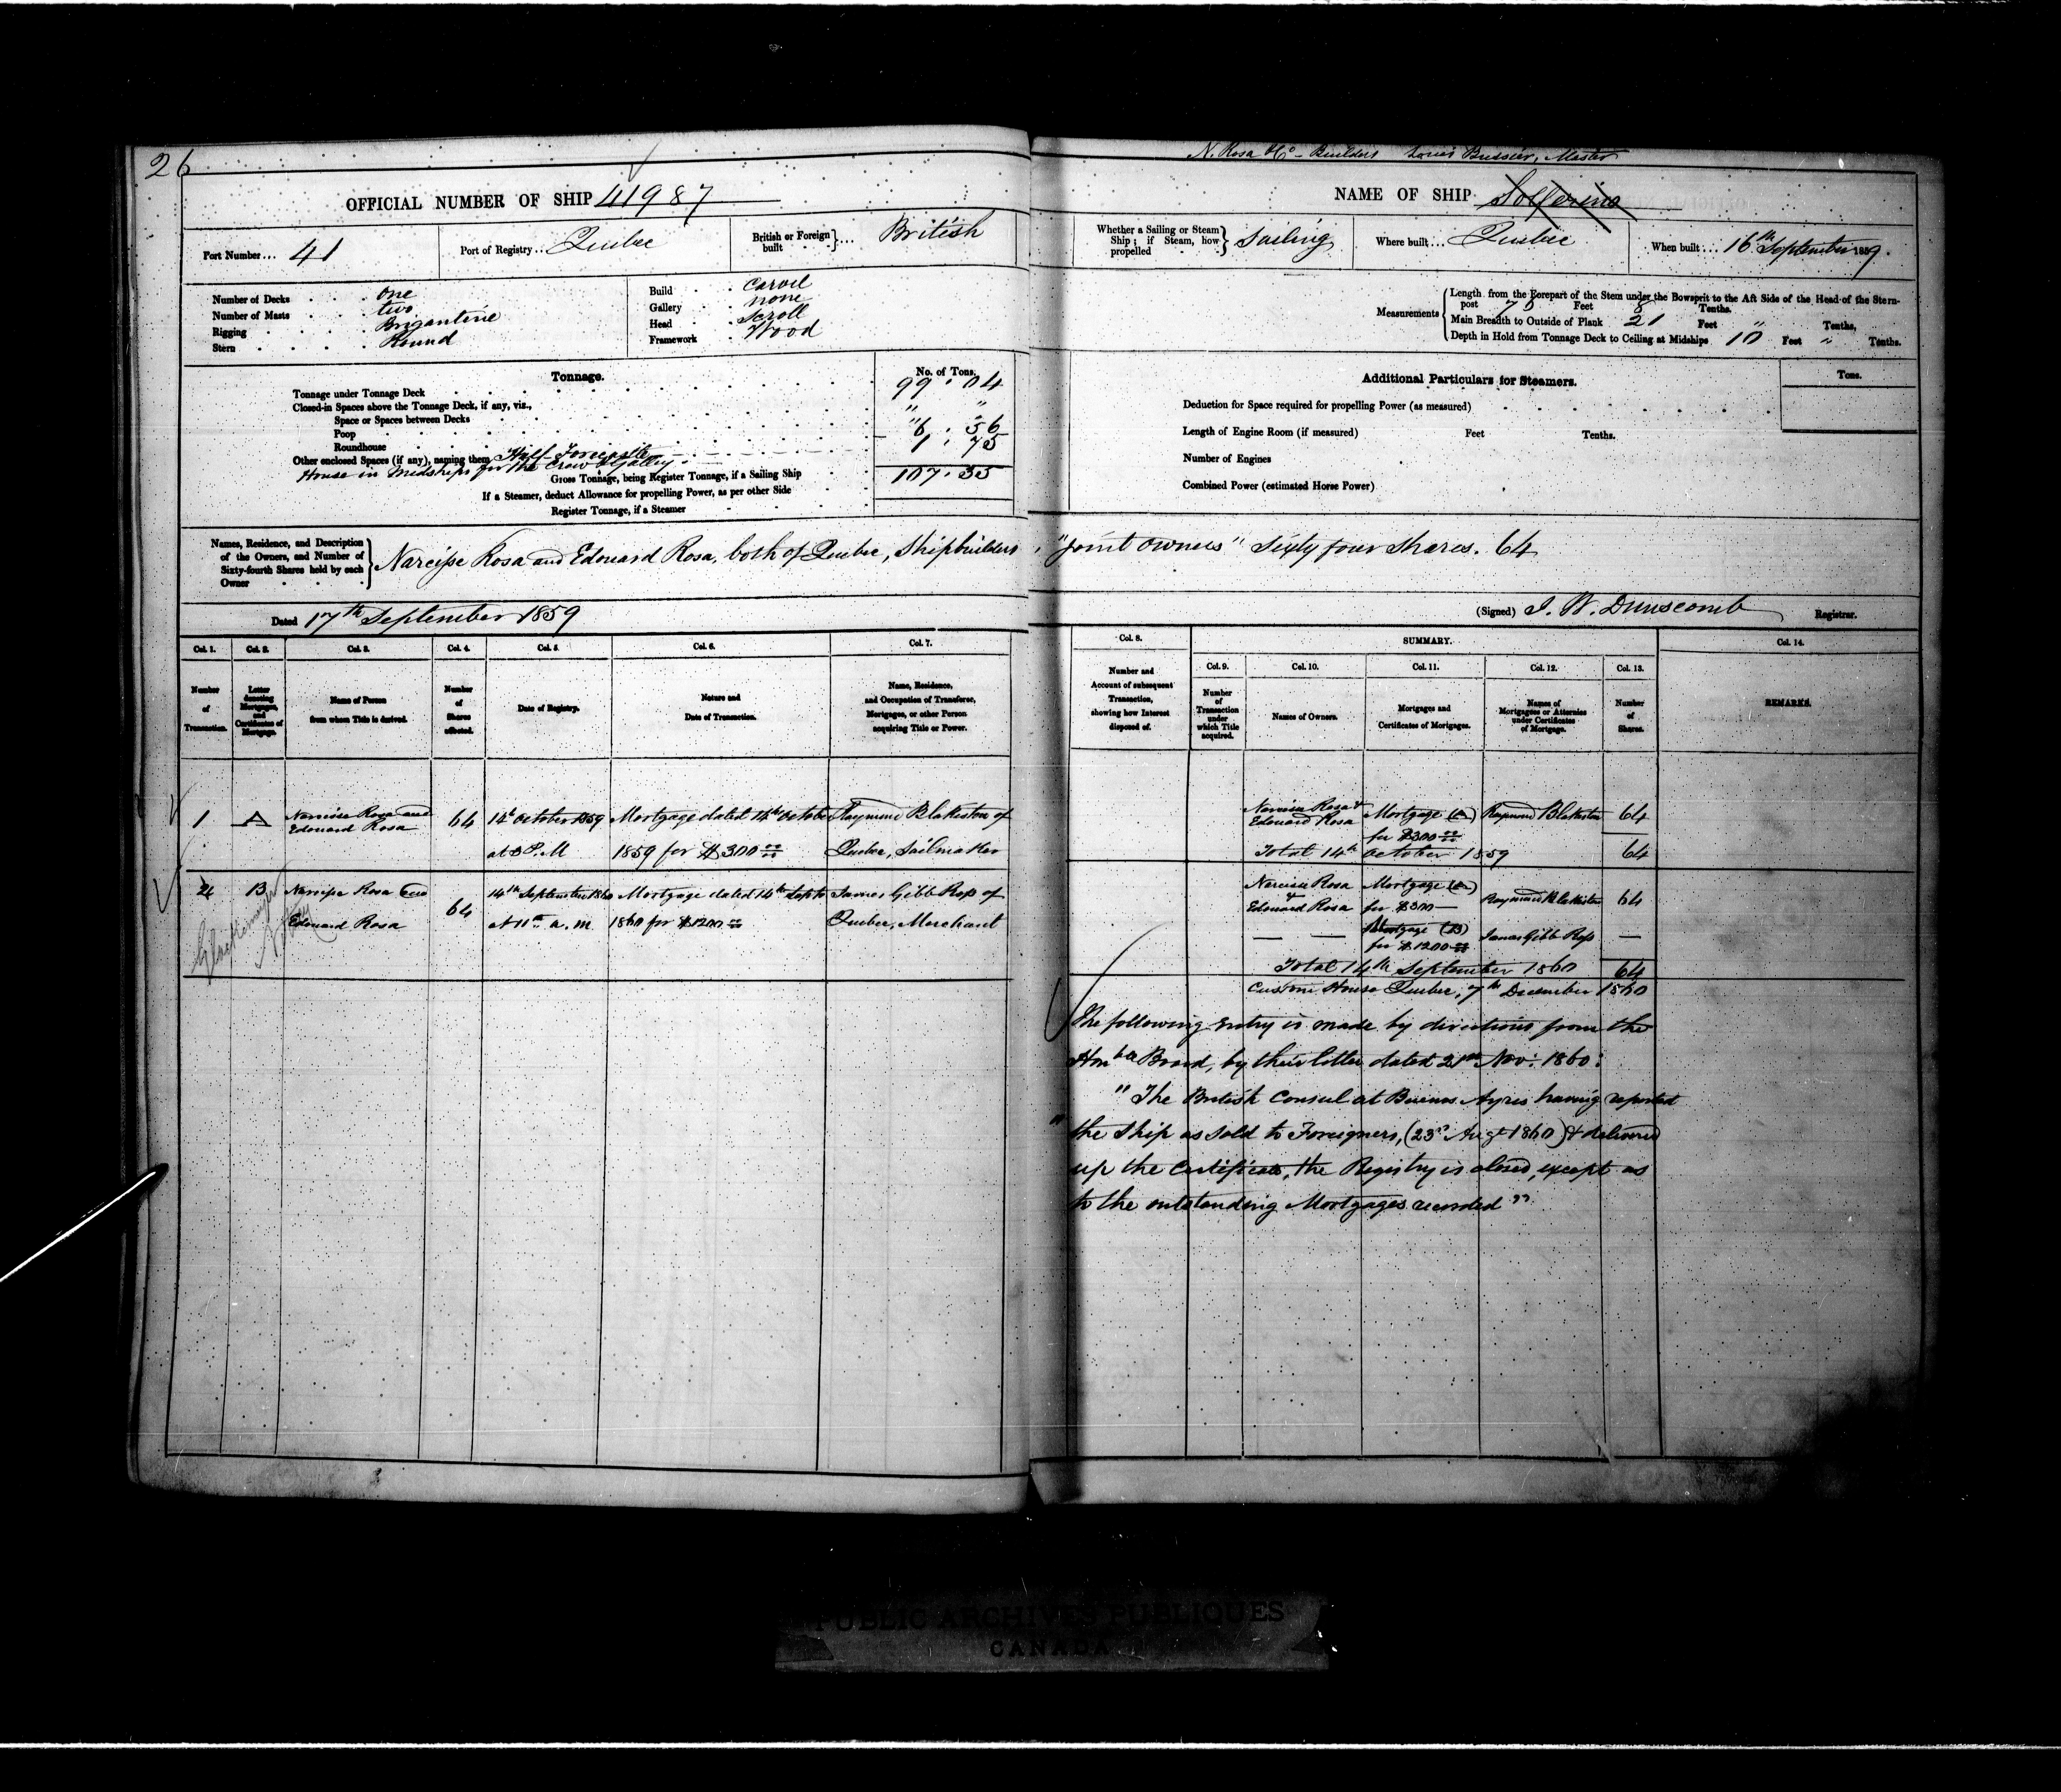 26
OFFICIAL NUMBER OF SHIP 41987
Port Number... 41
Port of Registry... Quebec
British or Foreign built }... British
Number of Decks . . . one
Number of Masts . . . two
Rigging . . . . Brigantine
Stern . . . . . Round
Build . . Carvel
Gallery . . none
Head . . Scroll
Framework . . Wood
Tonnage.
No. of Tons.
Tonnage under Tonnage Deck 99 . 04
Closed-in Spaces above the Tonnage Deck, if any, viz., " "
Space or Spaces between Decks
Poop " 6 . 56
Roundhouse 1 . 75
Other enclosed Spaces (if any), naming them Half Forecastle
House in Midships for the Crew & Galley
Gross Tonnage, being Register Tonnage, if a Sailing Ship 107 . 35
If a Steamer, deduct Allowance for propelling Power, as per other Side
Register Tonnage, if a Steamer
Names, Residence, and Description of the Owners, and Number of Sixty-fourth Shares held by each Owner
Narcisse Rosa and Edouard Rosa, both of Quebec, Shipbuilders
Dated 17th September 1859
Col. 1. Col. 2. Col. 3. Col. 4. Col. 5. Col. 6. Col. 7.
Number of Transaction.
Letter denoting Mortgages, and Certificates of Mortgage.
Name of Person from whom Title is derived.
Number of Shares affected.
Date of Registry.
Nature and Date of Transaction.
Name, Residence, and Occupation of Transferee, Mortgagee, or other Person acquiring Title or Power.
1 A Narcisse Rosa and Edouard Rosa 64 14th October 1859 Mortgage dated 14th October Raymond Blakiston of
at 3 P.M 1859 for $300 00/00 Quebec, Sailmaker
2 B Narcisse Rosa and 14th September 1860 Mortgage dated 14th Septr James Gibb Ross of
Edouard Rosa 64 at 11 a.m 1860 for $1200 00/00 Quebec, Merchant
N. Rosa & Co - Builders Louis Bussier, Master
NAME OF SHIP Solferino
Whether a Sailing or Steam Ship; if Steam, how propelled } Sailing
Where built... Quebec
When built... 16th September 1859.
Measurements
Length from the Forepart of the Stem under the Bowsprit to the Aft Side of the Head of the Stern-
post 75 Feet 8 Tenths.
Main Breadth to Outside of Plank 21 Feet " Tenths,
Depth in Hold from Tonnage Deck to Ceiling at Midships 10 Feet " Tenths.
Additional Particulars for Steamers.
Tons.
Deduction for Space required for propelling Power (as measured)
Length of Engine Room (if measured) Feet Tenths.
Number of Engines
Combined Power (estimated Horse Power)
"Joint Owners" Sixty four Shares. 64
(Signed) J. W. Dunscomb Registrar.
Col. 8.
SUMMARY.
Col. 14.
Col. 9. Col. 10. Col. 11. Col. 12. Col. 13.
Number and Account of subsequent Transaction, showing how Interest disposed of.
Number of Transaction under which Title acquired.
Names of Owners.
Mortgages and Certificates of Mortgages.
Names of Mortgagees or Attornies under Certificates of Mortgage.
Number of Shares.
REMARKS.
Narcisse Rosa & Edouard Rosa Mortgage (A) Raymond Blakiston 64
for $300 00/00
Total 14th October 1859 64
Narcisse Rosa Mortgage (A)
& Edouard Rosa for $300 — Raymond Blakiston 64
— — Mortgage (B)
for $1200 00/00 James Gibb Ross —
Total 14th September 1860 64
Custom House Quebec, 7th December 1860
The following entry is made by directions from the
Honble Board, by their letter dated 21st Nov: 1860:
"The British Consul at Buenos Ayres having reported
"the Ship as sold to Foreigners, (23rd Augt 1860) & delivered
up the Certificate, the Registry is closed, except as
to the outstanding Mortgages recorded"
PUBLIC ARCHIVES PUBLIQUES
CANADA